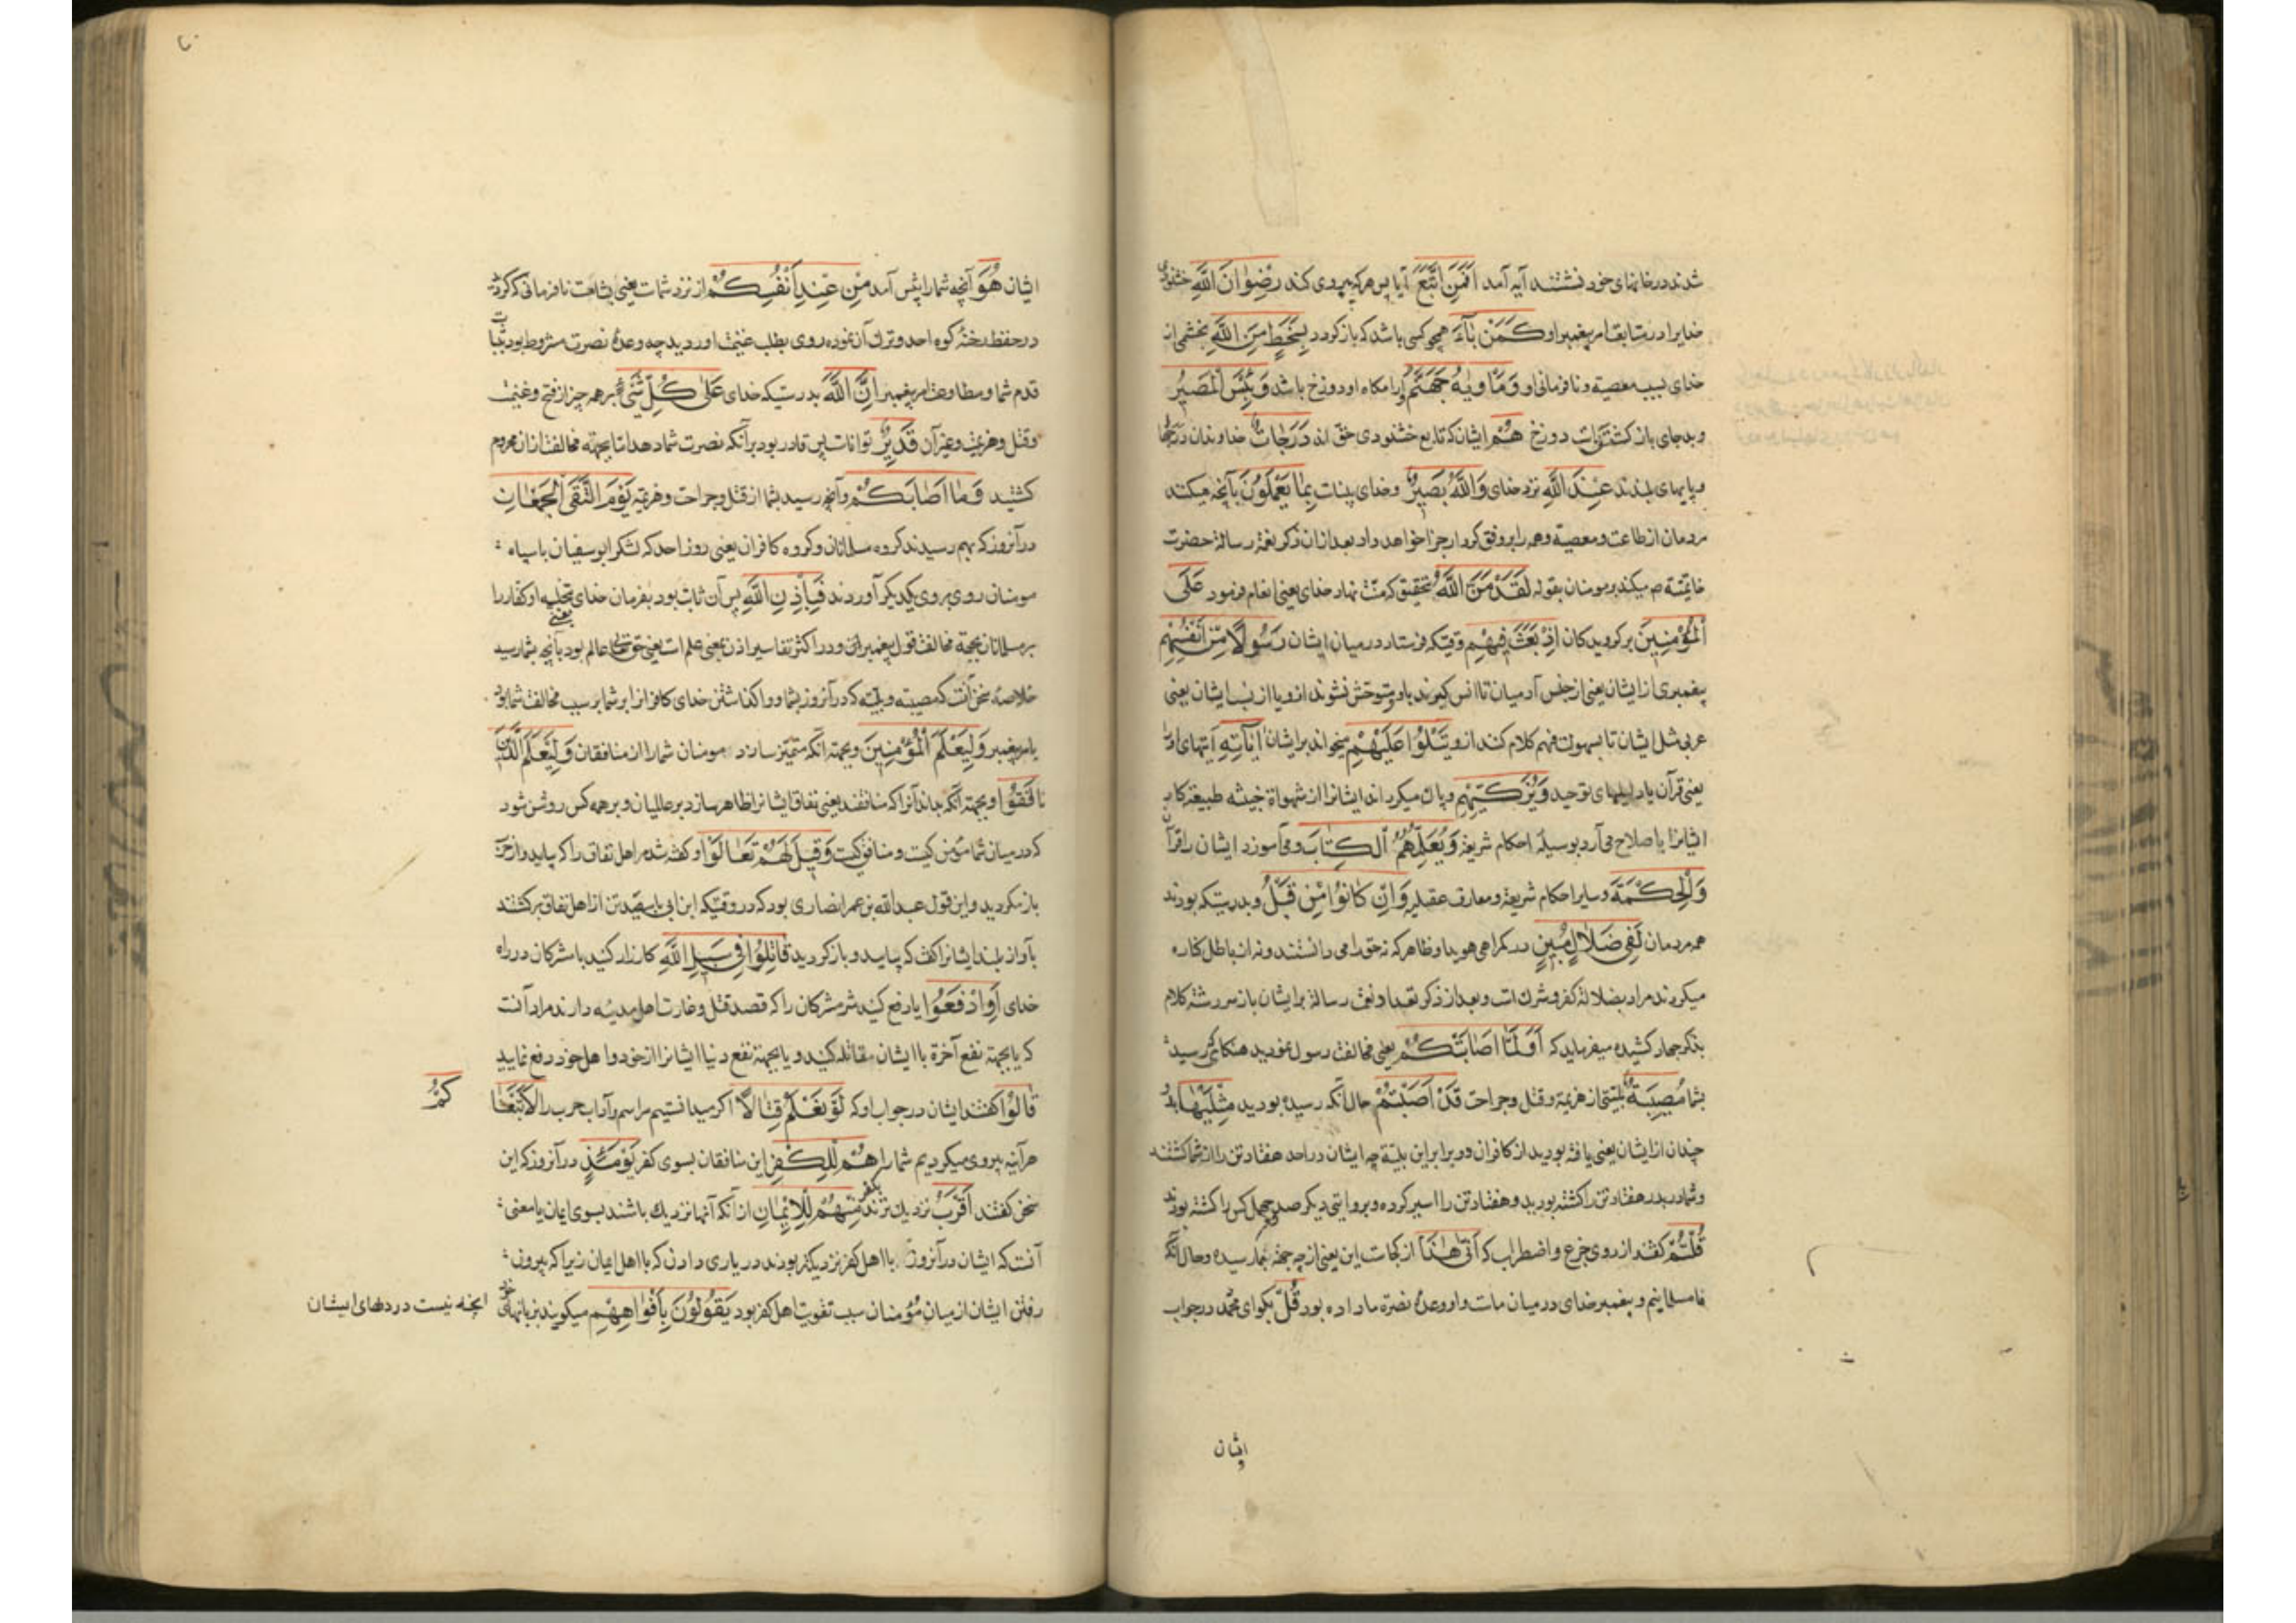 شدند در خانهای خود نشتند آیه آمد اَفَمَنِ اتَّبَعَ آیا پس هر که پیروی کند رِضْوٰانَ اللّٰهِ خشنودی
خدایرا در متابعت امر پیغمبر او كَمَنْ بٰآءَ همچو کسی باشد که باز کردد بِسَخَطٍ مِنَ اللّٰهِ بخشمی از
خدای بسبب معصیة و نافرمانی او وَمَأْوٰیهُ جَهَنَّمُ و آرامکاه او دوزخ باشد وَبِئْسَ الْمَصِیرُ
و بد جای باز کشتنیست دوزخ هُمْ ایشان که تابع خشنودی حق اند دَرَجٰاتٌ خداوندان درجها
و پایهای بلندند عِنْدَ اللّٰهِ نزد خدای وَاللّٰهُ بَصِیرٌ و خدای بیناست بِمٰا یَعْمَلُونَ بآنچه میکنند
مردمان از طاعت و معصیة و همه را بر وفق کردار جزا خواهد داد بعد ازان ذکر نعمة رسالة حضرت
خاتمیّة ص میکند بر مومنان بقوله لَقَدْ مَنَّ اللّٰهُ بتحقیق که منّت نهاد خدای یعنی انعام فرمود عَلَی
الْمُؤْمِنِینَ بر کرویدکان اِذْ بَعَثَ فِیهِمْ وقتیکه فرستاد در میان ایشان رَسُولًا مِنْ اَنْفُسِهِمْ
پیغمبری از ایشان یعنی از جنس آدمیان تا انس کیرند باو و متوحش نشوند ازو یا از نسب ایشان یعنی
عربی مثل ایشان تا بسهولت فهم کلام کنند ازو یَتْلُوا عَلَیْهِمْ میخواند بر ایشان اٰیٰاتِهِ آیتهای او را
یعنی قرآن یا دلیلهای توحید وَیُزَكِّیهِمْ و پاک میکرداند ایشانرا از شهواة خبیثه طبیعة کار
ایشانرا باصلاح می آرد بوسیلۀ احکام شریعة وَیُعَلِّمُهُمُ الْكِتٰابَ و می آموزد ایشان را قرآن
وَالْحِكْمَةَ و سایر احکام شریعة و معارف عقلیه وَاِنْ كٰانُوا مِنْ قَبْلُ و بدرستیکه بودند
همه مردمان لَفِی ضَلٰالٍ مُبِینٍ در کمراهی هویدا و ظاهر که نه حق را می دانستند و نه از باطل کناره
میکردند مراد بضلالة کفر و شرک است و بعد از ذکر تعداد نعمت رسالة بر ایشان باز سر رشتۀ کلام
بذکر جهاد کشیده میفرماید که اَوَلَمّٰا اَصٰابَتْكُمْ یعنی مخالفت رسول نمودید هنکامی که رسید
بشما مُصِیبَةٌ بلیّتی از هزیمة و قتل و جراحت قَدْ اَصَبْتُمْ حال آنکه رسیده بودید مِثْلَیْهٰا بدو
چندان از ایشان یعنی یافته بودید از کافران دو برابر این بلیّة چه ایشان در احد هفتاد تن را از شما کشتند
و شما در بدر هفتاد تن را کشته بودید و هفتاد تن را اسیر کرده و بروایتی دیکر صد و چهل کس را کشته بودند
قُلْتُمْ کفتید از روی جزع و اضطراب که اَنّٰی هٰذٰا از کجاست این یعنی از چه جهة بما رسیده و حال آنکه
ما مسلمانیم و پیغمبر خدای در میان ماست و او وعدۀ نصرة ما داده بود قُلْ بکو ای محمّد در جواب
ایشان
ایشان هُوَ آنچه شما را پیش آمد مِنْ عِنْدِ اَنْفُسِكُمْ از نزد شماست یعنی بشامت نافرمانی که کردید
در حفظ رخنۀ کوه احد و ترک آن نموده روی بطلب غنیمت آوردید چه وعدۀ نصرت مشروط بود بثبات
قدم شما و مطاوعت امر پیغمبر اِنَّ اللّٰهَ بدرستیکه خدای عَلیٰ كُلِّ شَیْءٍ بر همه چیز از فتح و غنیمت
و قتل و هزیمت و غیر آن قَدِیرٌ تواناست پس قادر بود بر آنکه نصرت شما دهد اما بجهة مخالفت از ان محروم
کشتید وَمٰا اَصٰابَكُمْ و آنچه رسید بشما از قتل و جراحت و هزیمة یَوْمَ الْتَقَی الْجَمْعٰانِ
در آنروز که بهم رسیدند کروه مسلمانان و کروه کافران یعنی روز احد که لشکر ابوسفیان با سپاه
مومنان روی بروی یکدیکر آوردند فَبِاِذْنِ اللّٰهِ پس آن ثابت بود بفرمان خدای یعنی تخلیه او کفار را
بر مسلمانان بجهة مخالفت قول پیغمبر او و در اکثر تفاسیر اذن بمعنی علم است یعنی حق تعالی عالم بود بآنچه بشما رسید
خلاصۀ سخن آنست که مصیبة و بلیّه که در آنروز بشما و واکذاشتن خدای کافرانرا بر شما بر سبب مخالفت شما بود
بامر پیغمبر وَلِیَعْلَمَ الْمُؤْمِنِینَ و بجهة آنکه متمیّز سازد مومنان شما را از منافقان وَلِیَعْلَمَ الَّذِینَ
نٰافَقُوا و بجهة آنکه بداند آنرا که منافقند یعنی نفاق ایشانرا ظاهر سازد بر عالمیان و بر همه کس روشن شود
که در میان شما مؤمن کیست و منافق کیست وَقِیلَ لَهُمْ تَعٰالَوْا و کفته شد مر اهل نفاق را که بیایید و از حرب
باز مکردید و این قول عبد الله بن عمر انصاری بود که در وقتیکه ابن ابی با سیصد تن از اهل نفاق برکشتند
بآواز بلند ایشانرا کفت که بیایید و باز کردید قٰاتِلُوا فِی سَبِیلِ اللّٰهِ کارزار کنید با مشرکان در راه
خدای اَوِ ادْفَعُوا یا دفع کنید شر مشرکان را که قصد قتل و غارت اهل مدینه دارند مراد آنست
که یا بجهة نفع آخرة با ایشان مقاتله کنید و یا بجهة نفع دنیا ایشانرا از خود و اهل خود دفع نمایید
قٰالُوا کفتند ایشان در جواب او که لَوْ نَعْلَمُ قِتٰالًا اکر میدانستیم مراسم و آداب حرب را لَاتَّبَعْنٰا كُمْ
هر آینه پیروی میکردیم شما را هُمْ لِلْكُفْرِ این منافقان بسوی کفر یَوْمَئِذٍ در آنروز که این
سخن کفتند اَقْرَبُ نزدیک ترند بکفر مِنْهُمْ لِلْاِیمٰانِ از آنکه آنها نزدیک باشند بسوی ایمان یا معنی
آنست که ایشان در آنروز با اهل کفر نزدیکتر بودند در یاری دادن که با اهل ایمان زیرا که بیرون
رفتن ایشان از میان مؤمنان سبب تقویت اهل کفر بود یَقُولُونَ بِاَفْوٰاهِهِمْ میکویند بزبانهای خود آنچه نیست در دلهای ایشان